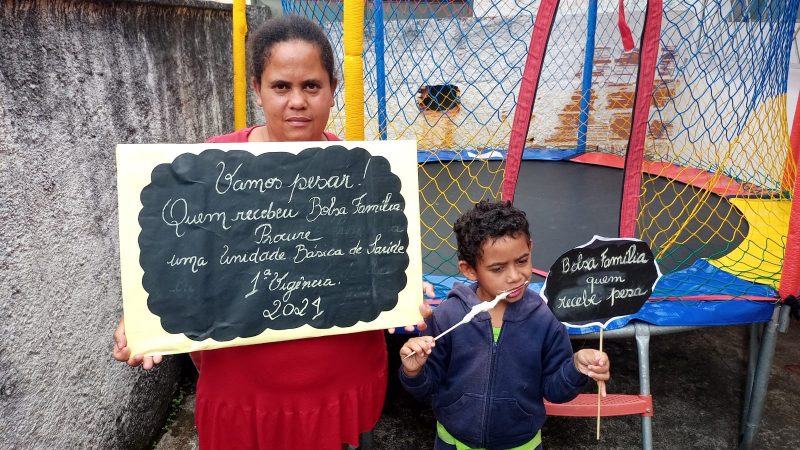 Vamos pesar!
Quem recebeu Bolsa Família
Procure
uma Unidade Básica de Saúde
1ª Vigência.
2021
Bolsa Família
quem
recebe pesa